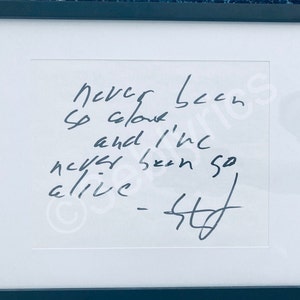 never been
so alone
and I've
never been so
alive